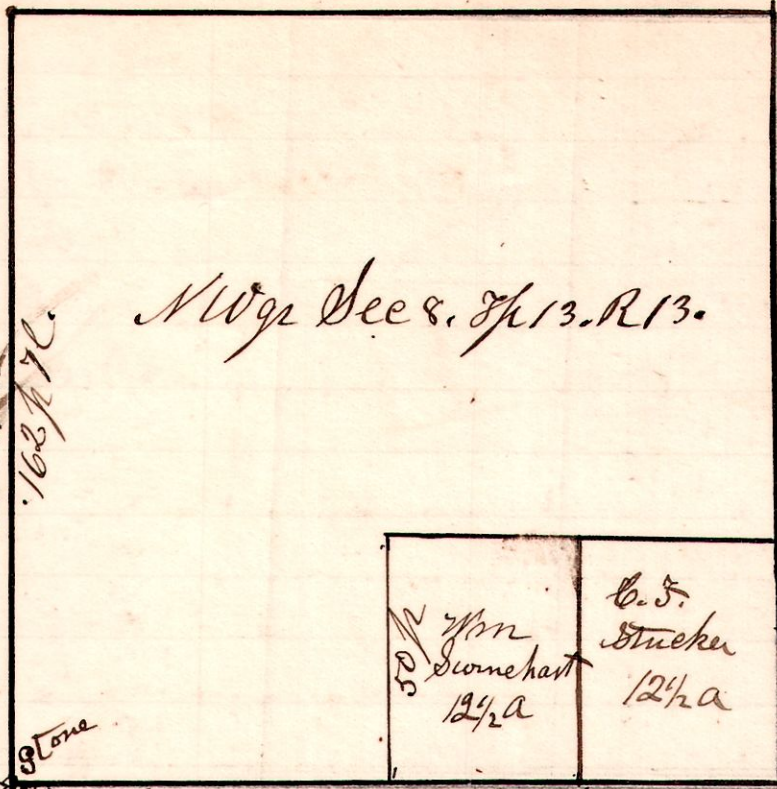 NW qr Sec 8. Tp 13. R 13.
162 p 7 l.
50 p
Wm
Swinehart
12 1/2 a
C. F.
Stucker
12 1/2 a
Stone